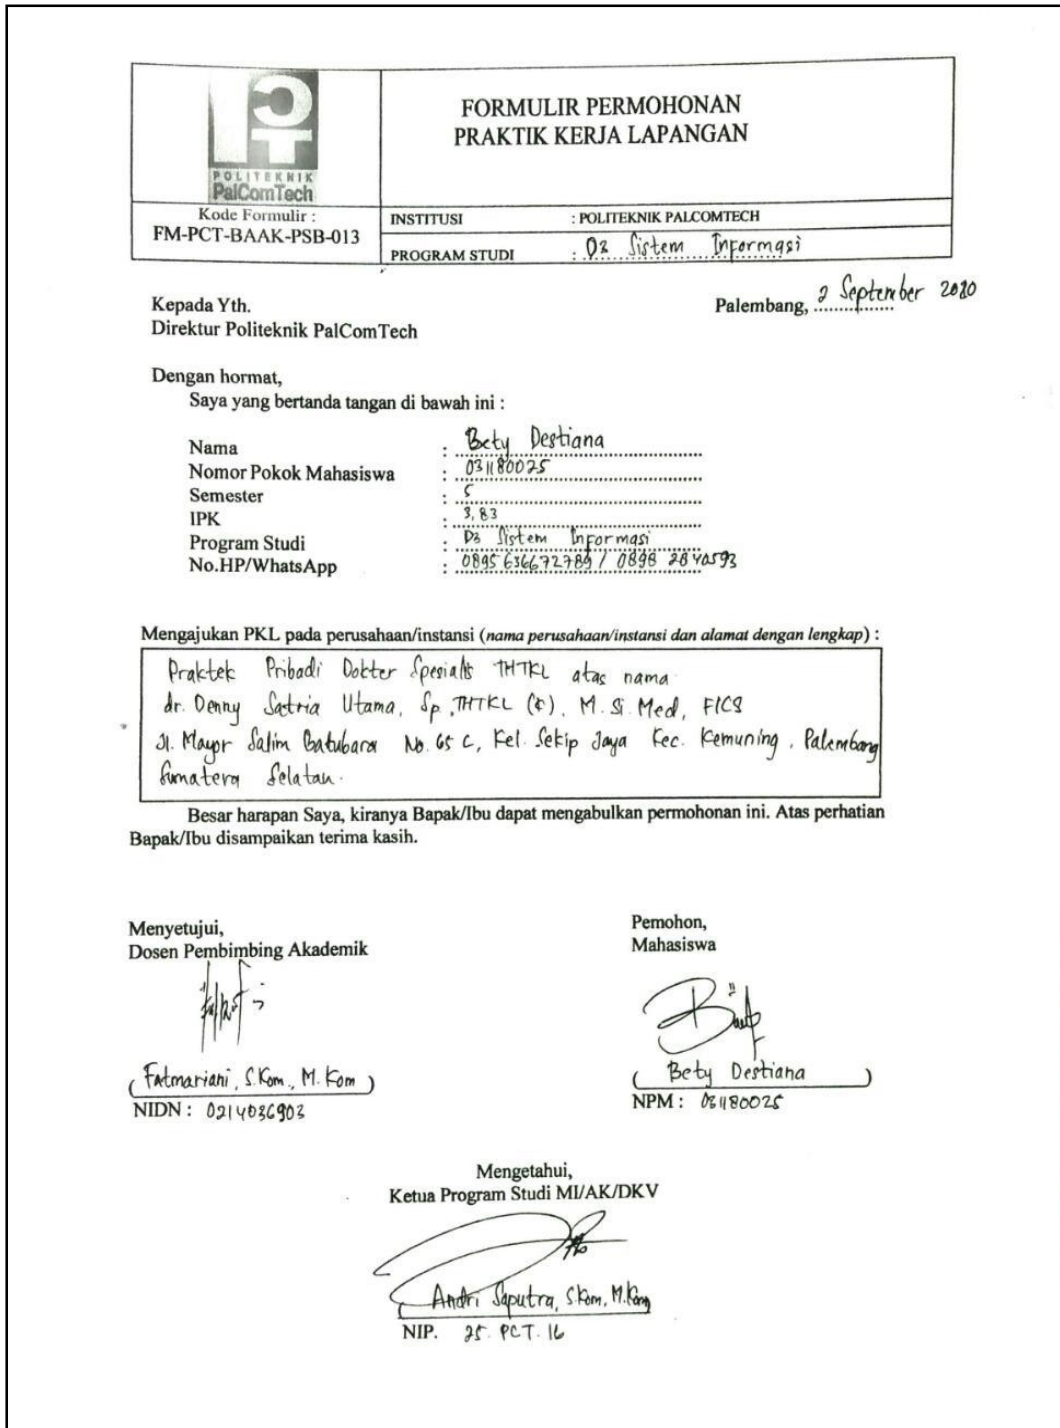 POLITEKNIK
PalComTech
FORMULIR PERMOHONAN
PRAKTIK KERJA LAPANGAN
Kode Formulir :
FM-PCT-BAAK-PSB-013
INSTITUSI : POLITEKNIK PALCOMTECH
PROGRAM STUDI : D3 Sistem Informasi
Palembang, 2 September 2020
Kepada Yth.
Direktur Politeknik PalComTech
Dengan hormat,
Saya yang bertanda tangan di bawah ini :
Nama : Bety Destiana
Nomor Pokok Mahasiswa : 031180025
Semester : 5
IPK : 3,83
Program Studi : D3 Sistem Informasi
No.HP/WhatsApp : 0895636672789 / 0898 2840593
Mengajukan PKL pada perusahaan/instansi (nama perusahaan/instansi dan alamat dengan lengkap) :
Praktek Pribadi Dokter Spesialis THTKL atas nama
dr. Denny Satria Utama, Sp.THTKL (K), M. Si. Med, FICS
Jl. Mayor Salim Batubara No. 65 C, Kel. Sekip Jaya Kec. Kemuning, Palembang
Sumatera Selatan.
Besar harapan Saya, kiranya Bapak/Ibu dapat mengabulkan permohonan ini. Atas perhatian
Bapak/Ibu disampaikan terima kasih.
Menyetujui,
Dosen Pembimbing Akademik
(Fatmariani, S.Kom., M.Kom)
NIDN : 0214036903
Pemohon,
Mahasiswa
(Bety Destiana)
NPM : 031180025
Mengetahui,
Ketua Program Studi MI/AK/DKV
Andri Saputra, S.Kom, M.Kom
NIP. 25. PCT. 16